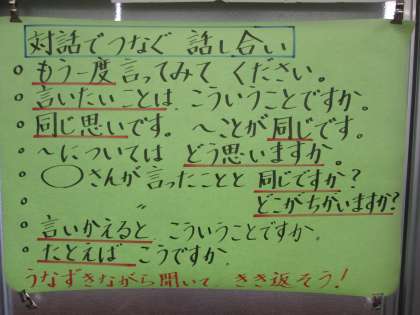 対話でつなぐ 話し合い
○もう一度言ってみてください。
○言いたいことは、こういうことですか。
○同じ思いです。 ～ことが同じです。
○～については どう思いますか。
○ ◯さんが言ったことと 同じですか?
○ 〃 どこがちがいますか?
○言いかえると こういうことですか。
○たとえば こうですか。
うなずきながら聞いて きき返そう!